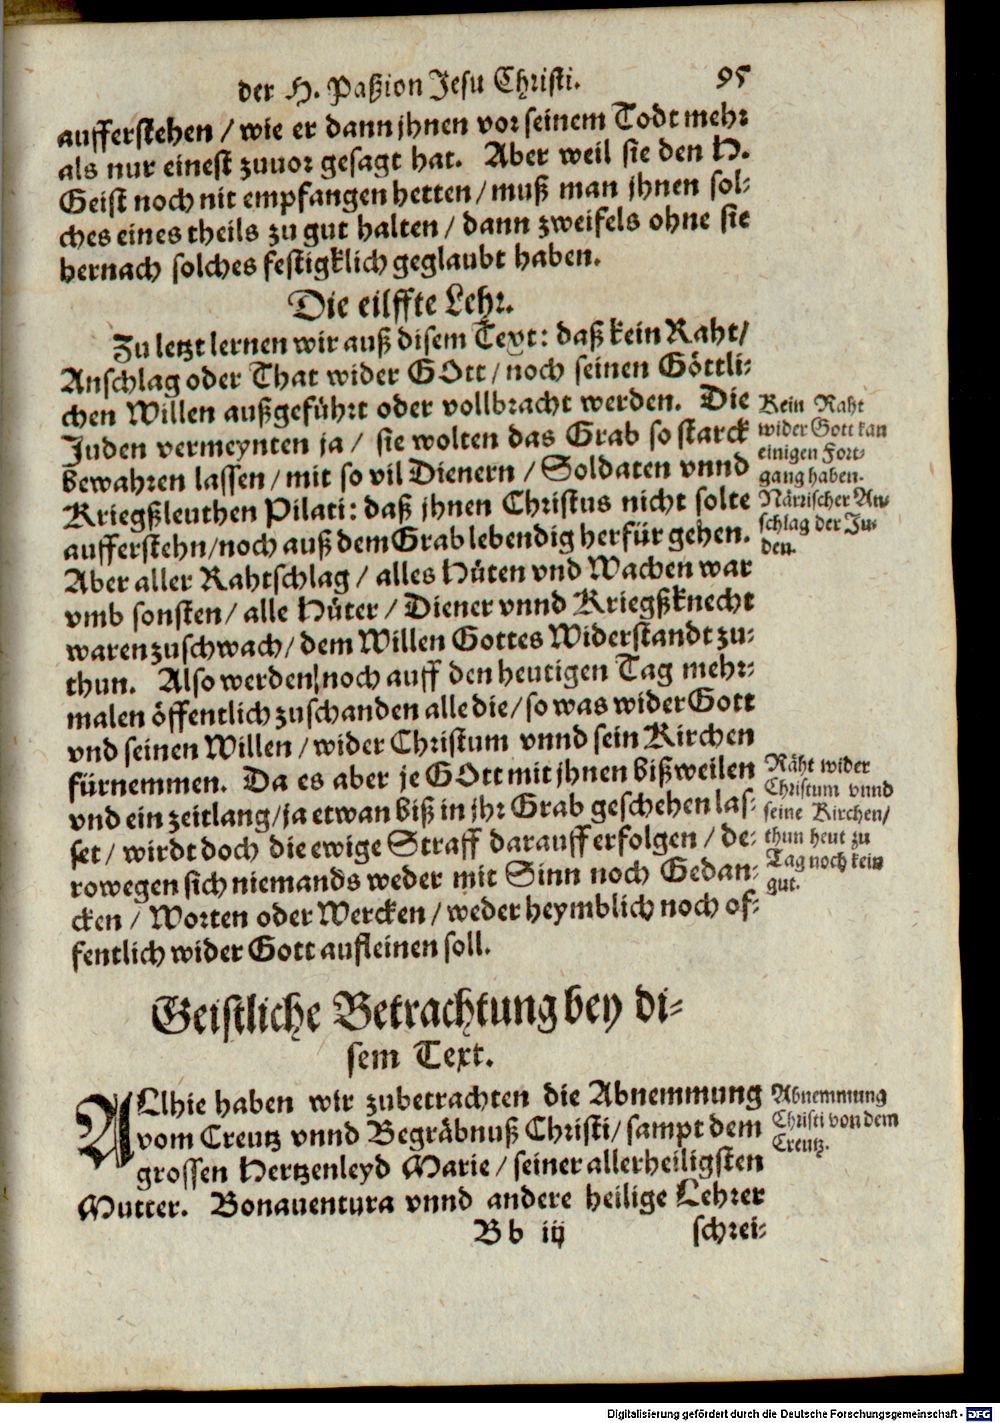 der H. Paßion Jesu Christi. 95
aufferstehen / wie er dann jhnen vor seinem Todt mehr
als nur einest zuuor gesagt hat. Aber weil sie den H.
Geist noch nit empfangen hetten / muß man jhnen sol-
ches eines theils zu gut halten / dann zweifels ohne sie
hernach solches festigklich geglaubt haben.
Die eilffte Lehr.
Zu letzt lernen wir auß disem Text: daß kein Raht /
Anschlag oder That wider GOtt / noch seinen Göttli-
chen Willen außgeführt oder vollbracht werden. Die
Juden vermeynten ja / sie wolten das Grab so starck
bewahren lassen / mit so vil Dienern / Soldaten vnnd
Kriegßleuthen Pilati: daß jhnen Christus nicht solte
aufferstehn / noch auß dem Grab lebendig herfür gehen.
Aber aller Rahtschlag / alles Hüten vnd Wachen war
vmb sonsten / alle Hüter / Diener vnnd Kriegßknecht
waren zu schwach / dem Willen Gottes Widerstandt zu-
thun. Also werden noch auff den heutigen Tag mehr-
malen öffentlich zu schanden alle die / so was wider Gott
vnd seinen Willen / wider Christum vnnd sein Kirchen
fürnemmen. Da es aber je GOtt mit jhnen bißweilen
vnd ein zeitlang / ja etwan biß in jhr Grab geschehen las-
set / wirdt doch die ewige Straff darauff erfolgen / de-
rowegen sich niemands weder mit Sinn noch Gedan-
cken / Worten oder Wercken / weder heymblich noch of-
fentlich wider Gott aufleinen soll.
Kein Raht
wider Gott kan
einigen Fort-
gang haben.
Närrischer An-
schlag der Ju-
den.
Räht wider
Christum vnnd
seine Kirchen /
thun heut zu
Tag noch kein
gut.
Geistliche Betrachtung bey di-
sem Text.
ALlhie haben wir zubetrachten die Abnemmung
vom Creutz vnnd Begräbnuß Christi / sampt dem
grossen Hertzenleyd Marie / seiner allerheiligsten
Mutter. Bonauentura vnnd andere heilige Lehrer
Abnemmung
Christi von dem
Creutz.
Bb iij schrei-
Digitalisierung gefördert durch die Deutsche Forschungsgemeinschaft - DFG